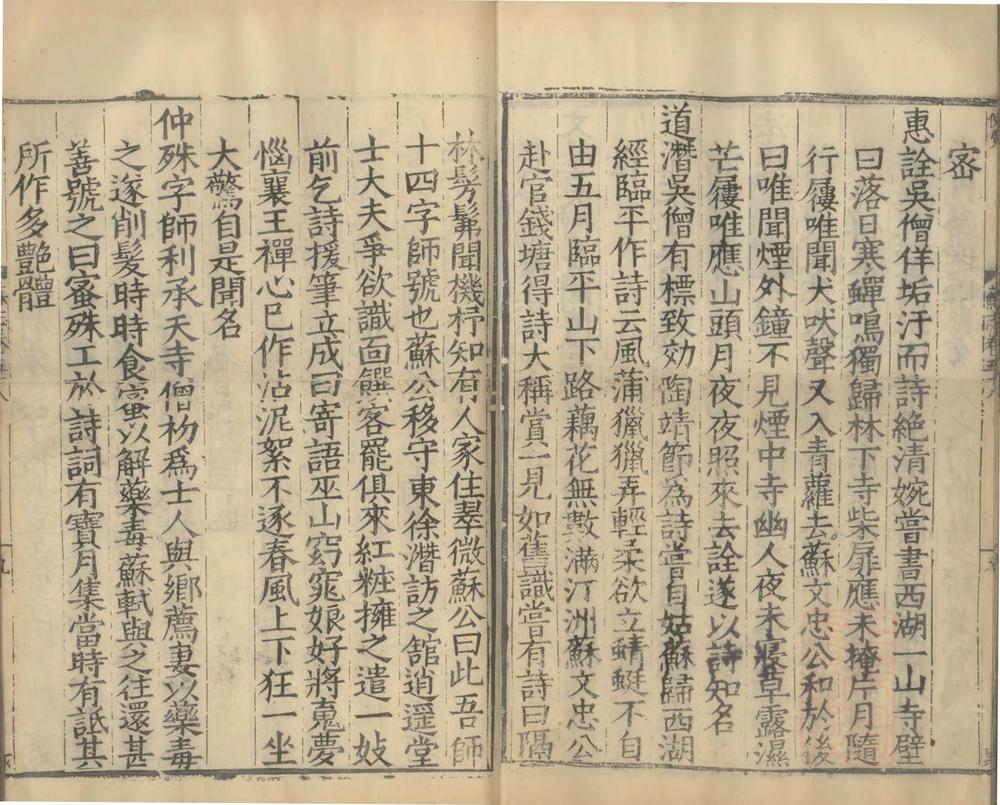 宻
惠詮吳僧佯垢汙而詩絶清婉嘗書西湖一山寺壁
曰落日寒蟬鳴獨歸林下寺柴扉應未掩片月隨
行屨唯聞犬吠聲又入青蘿去蘇文忠公和於後
曰唯聞煙外鐘不見煙中寺幽人夜未寢草露濕
芒屨唯應山頭月夜夜照來去詮遂以詩知名
道潛吳僧有標致効陶靖節為詩嘗自姑蘇歸西湖
經臨平作詩云風蒲獵獵弄輕柔欲立蜻蜓不自
由五月臨平山下路藕花無數滿汀洲蘇文忠公
赴官錢塘得詩大稱賞一見如舊識嘗有詩曰隔
林髣髴聞機杼知有人家住翠微蘇公曰此吾師
十四字師號也蘇公移守東徐潛訪之舘逍遥堂
士大夫爭欲識面饌客罷俱來紅粧擁之遣一妓
前乞詩援筆立成曰寄語巫山窈窕娘好將䰟夢
惱襄王禪心已作沾泥絮不逐春風上下狂一坐
大驚自是聞名
仲殊字師利承天寺僧初爲士人與鄉薦妻以藥毒
之遂削髮時時食蜜以解藥毒蘇軾與之往還甚
善號之曰蜜殊工於詩詞有寶月集當時有詆其
所作多艷體